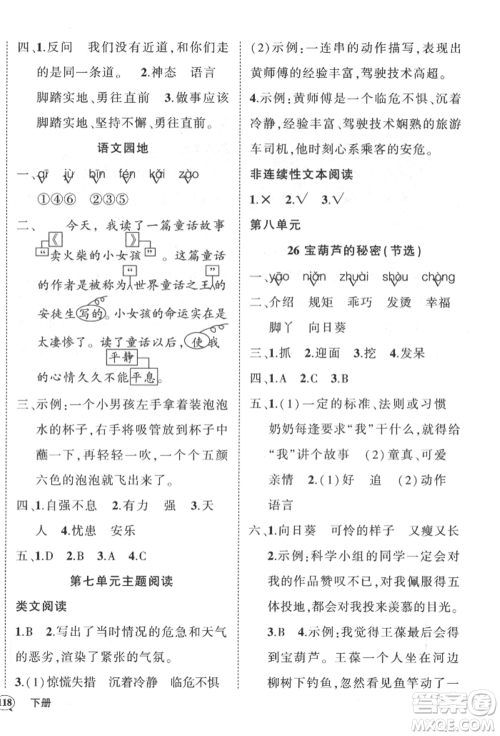 四、1.反问 我们没有近道,和大家走
的是同一条道。 2.神态 语言
脚踏实地、勇往直前 3.做事应该
脚踏实地、坚持不懈、勇往直前。
语文园地
一、qī jù bīn xī zào
①④⑥ ②③⑤
二、 今天,我读了一篇童话故事
《卖火柴的小女孩》。这篇童话的
作者是被称为“世界童话之王”的
安徒生写的。小女孩的命运实在太
太凄惨了,读完这篇童话后,使
平静
我的心情久久不能平息。
三、示例:一个小男孩左手举着装泡泡
水的杯子,右手拿着吸管在杯子里
蘸一蘸,轻轻一吹,一个个五颜
六色的泡泡就飞出来了。
四、1.自强不息 2.有力 3.天
人 4.忧患 安乐
五、1.D 2.C 3.A 4.B
第七单元主题阅读
类文阅读
1.B 2.写出了当时情况的危急和天气
的恶劣,渲染了紧张的气氛。
3.(1)惊慌失措 沉着冷静 临危不惧
118 下册
(2)示例:一连串的动作描写,表现了
黄师傅的经验丰富,驾驶技术高超。
4.示例:黄师傅是一个临危不惧、沉着
冷静、经验丰富、驾驶技术娴熟的旅游
车司机,他关心乘客的安危。
非连续性文本阅读
1.× 2.√ 3.√
第八单元
26 宝葫芦的秘密(节选)
一、yāo niǎn zhuài shòu chòng
二、介绍 规矩 乖巧 发烫 幸福
脚丫 向日葵
三、1.抓 2.迎面 3.挖 4.发呆
四、1.A 2.C
五、1.(1)一定的标准、法则或习惯
奶奶每逢要求“我”干什么,就得
给“我”讲个故事 (2)童真、可爱
亲情 2.(1)好 追 (2)动作
语言
六、1.向日葵 可怜的样子 又瘦又长
2.示例:科学小组的同学向王葆投
去了赞叹不已的目光,还有的同学
投地,对他投来羡慕的目光。
3.示例:我来讲讲王葆是怎样得
到宝葫芦的故事。王葆一个人坐在河边
柳树下钓鱼,钓到了一个宝葫芦